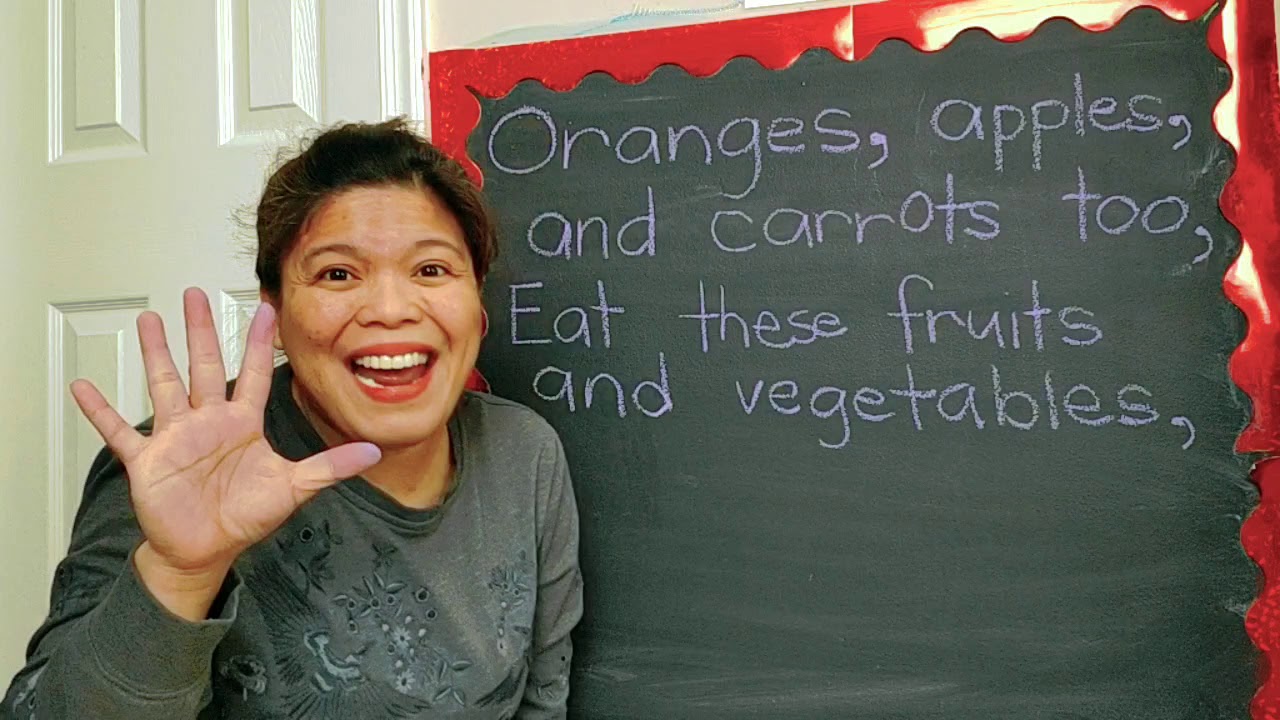 Oranges, apples,
and carrots too,
Eat these fruits
and vegetables,